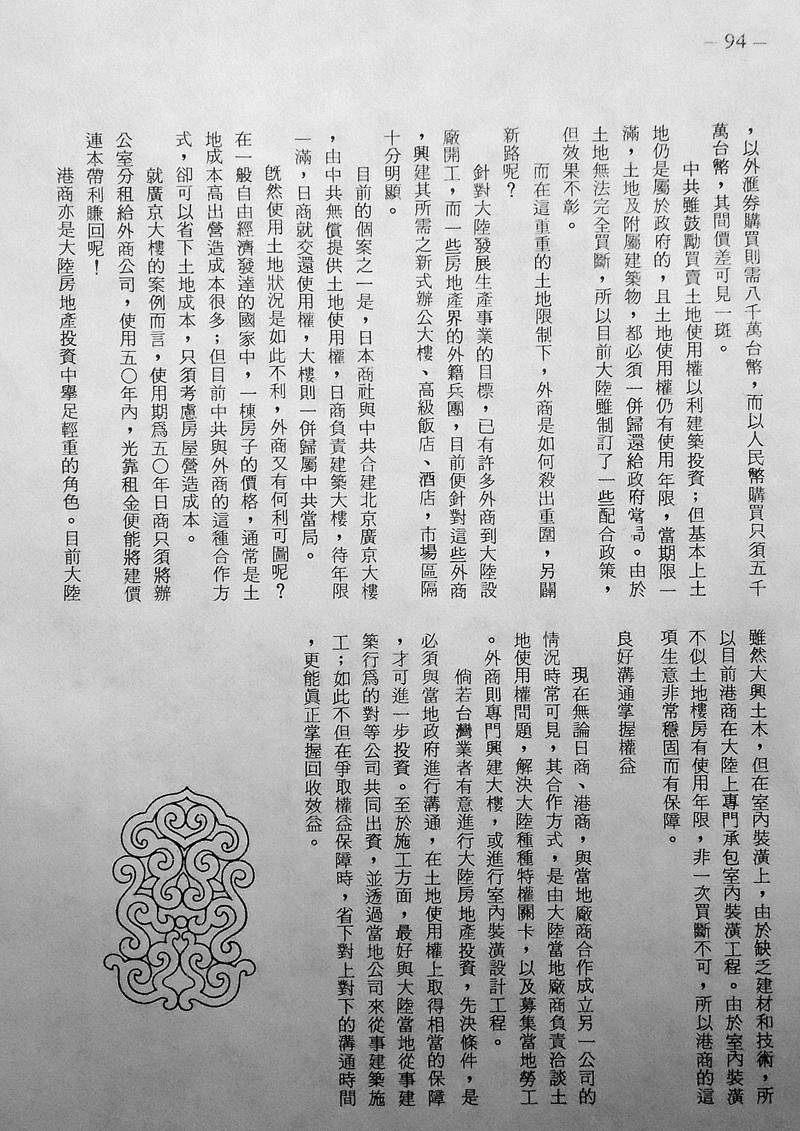 — 94 —
，以外滙券購買則需八千萬台幣，而以人民幣購買只須五千
萬台幣，其間價差可見一斑。
中共雖鼓勵買賣土地使用權以利建築投資；但基本上土
地仍是屬於政府的，且土地使用權仍有使用年限，當期限一
滿，土地及附屬建築物，都必須一併歸還給政府當局。由於
土地無法完全買斷，所以目前大陸雖制訂了一些配合政策，
但效果不彰。
而在這重重的土地限制下，外商是如何殺出重圍，另闢
新路呢？
針對大陸發展生產事業的目標，已有許多外商到大陸設
廠開工，而一些房地產界的外籍兵團，目前便針對這些外商
，興建其所需之新式辦公大樓、高級飯店、酒店，市場區隔
十分明顯。
目前的個案之一是，日本商社與中共合建北京廣京大樓
，由中共無償提供土地使用權，日商負責建築大樓，待年限
一滿，日商就交還使用權，大樓則一併歸屬中共當局。
旣然使用土地狀況是如此不利，外商又有何利可圖呢？
在一般自由經濟發達的國家中，一棟房子的價格，通常是土
地成本高出營造成本很多；但目前中共與外商的這種合作方
式，卻可以省下土地成本，只須考慮房屋營造成本。
就廣京大樓的案例而言，使用期爲五〇年日商只須將辦
公室分租給外商公司，使用五〇年內，光靠租金便能將建價
連本帶利賺回呢！
港商亦是大陸房地產投資中舉足輕重的角色。目前大陸
雖然大興土木，但在室內裝潢上，由於缺乏建材和技術，所
以目前港商在大陸上專門承包室內裝潢工程。由於室內裝潢
不似土地樓房有使用年限，非一次買斷不可，所以港商的這
項生意非常穩固而有保障。
良好溝通掌握權益
現在無論日商、港商，與當地廠商合作成立另一公司的
情況時常可見，其合作方式，是由大陸當地廠商負責洽談土
地使用權問題，解決大陸種種特權關卡，以及募集當地勞工
。外商則專門興建大樓，或進行室內裝潢設計工程。
倘若台灣業者有意進行大陸房地產投資，先決條件，是
必須與當地政府進行溝通，在土地使用權上取得相當的保障
，才可進一步投資。至於施工方面，最好與大陸當地從事建
築行爲的對等公司共同出資，並透過當地公司來從事建築施
工；如此不但在爭取權益保障時，省下對上對下的溝通時間
，更能眞正掌握回收效益。